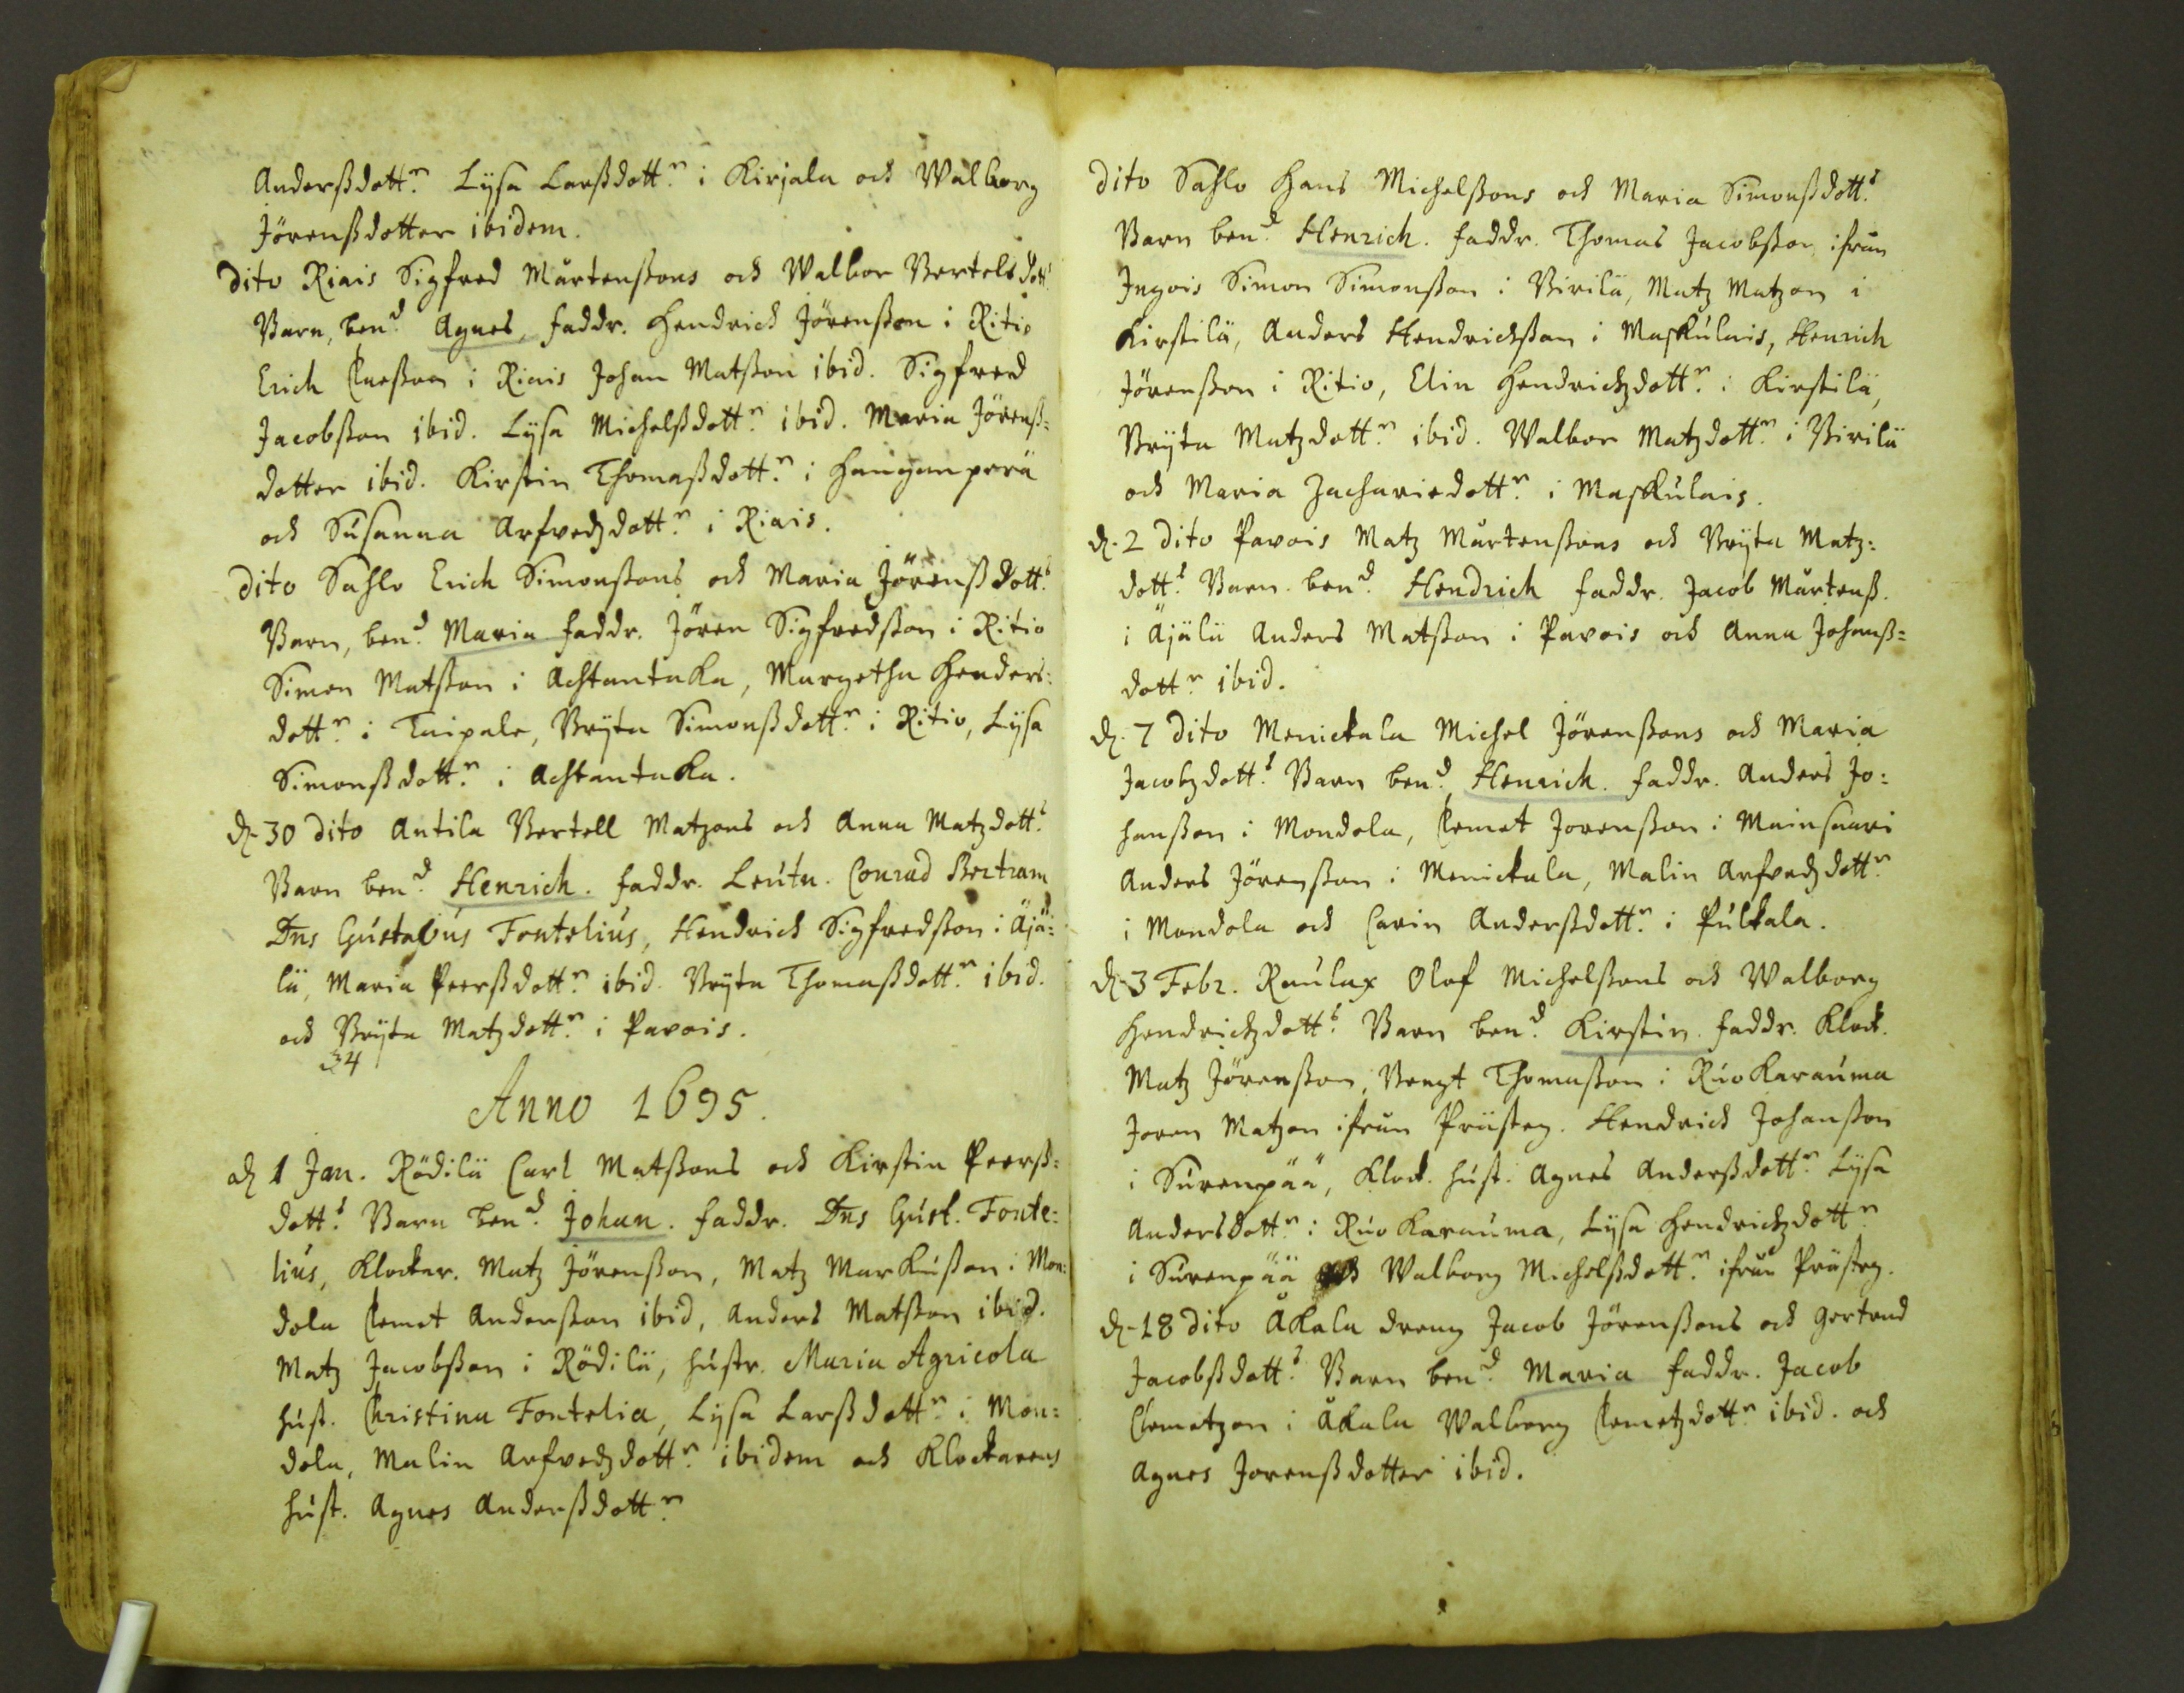 Anderßdott:r Lÿsa Larßdott:r i Kirjala och Walborg
Jörenßdotter ibidem.
dito Riais Sigfred Mårtenßons och Walbor Bertelsdott:s
Barn, ben:d Agnes, faddr. Hendrich Jörenßon i Ritio
Erich Claeßon i Riais Johan Matßon ibid. Sigfred
Jacobßon ibid. Lÿsa Michelßdott:r ibid. Maria Jörenß=
dotter ibid. Kirstin Thomaßdott:r i Hanganperä
och Susanna Arfvedzdott:r i Riais.
dito Sahlo Erich Simonßons och Maria Jörenßdott:s
Barn, ben:d Maria faddr. Jören Sigfredßon i Ritio
Simon Matßon i Achtantaka, Margetha Henders:
dott:r i Taipale, Brÿta Simonßdott:r i Ritio, Lÿsa
Simonßdott:r i Achtantaka.
d. 30 dito Antila Bertell Matzons och Anna Matzdott:s
Barn ben:d Henrich. faddr. Leutn. Conrad Bertram
Dns Gustavus Fontelius, Hendrich Sigfredßon i Äjä:
lä, Maria Peerßdott:r ibid. Brÿta Thomaßdott:r ibid.
och Brÿta Matzdott:r i Pavois.
34
Anno 1695.
d 1 Jan. Rödilä Carl Matßons och Kirstin Peerß:
dott:s Barn ben:d Johan. faddr. Dns Gust. Fonte:
lius, Klockar. Matz Jörenßon, Matz Markußon i Mon:
dola Clemet Anderßon ibid, Anders Matßon ibid.
Matz Jacobßon i Rödilä, hustr. Maria Agricola
hust. Christina Fontelia, Lÿsa Larßdott:r i Mon:
dola, Malin Arfvedzdott:r ibidem och Klockarens
hust. Agnes Anderßdott:r
dito Sahlo Hans Michelßons och Maria Simonßdott:s
Barn ben:d Henrich. faddr. Thomas Jacobßon, ifrån
Ingois Simon Simonßon i Virilä, Matz Matzon i
Kirstilä, Anders Hendrichßon i Maskulais, Henrich
Jörenßon i Ritio, Elin Hendrichzdott:r i Kirstilä,
Brÿta Matzdott:r ibid. Walbor Matzdott:r i Virilä
och Maria Zachariedott:r i Maskulais.
d. 2 dito Pavois Matz Mårtenßons och Brÿta Matz:
dott:s Barn. ben:d Hendrich faddr. Jacob Mårtenß.
i Äjälä Anders Matßon i Pavois och Anna Johanß=
dott:r ibid.
d. 7 dito Menickala Michel Jörenßons och Maria
Jacobzdott:s Barn ben:d Henrich. faddr. Anders Jo:
hanßon i Mondola, Clemet Jorenßon i Mainsaari
Anders Jörenßon i Menickala, Malin Arfvedzdott:r
i Mondola och Carin Anderßdott:r i Pulkala.
d. 3 Febr. Raulax Olof Michelßons och Walborg
Hendrichzdott:s Barn ben:d Kirstin. faddr. Klock.
Matz Jörenßon, Bengt Thomaßon i Ruokarauma
Joren Matzon ifrån Prästeg. Hendrich Johanßon
i Surenpää, Klock. hust. Agnes Anderßdott:r Lÿsa
Andersdott:r i Ruokarauma, Lÿsa Hendrichzdott:r
i Surenpää och Walborg Michelßdott:r ifrån Prästeg.
d. 18 dito Åkala dreng Jacob Jörenßons och Gertrud
Jacobßdott:s Barn ben:d Maria faddr. Jacob
Clemetzon i Åkala Walborg Clemetzdott:r ibid. och
Agnes Jorenßdotter ibid.